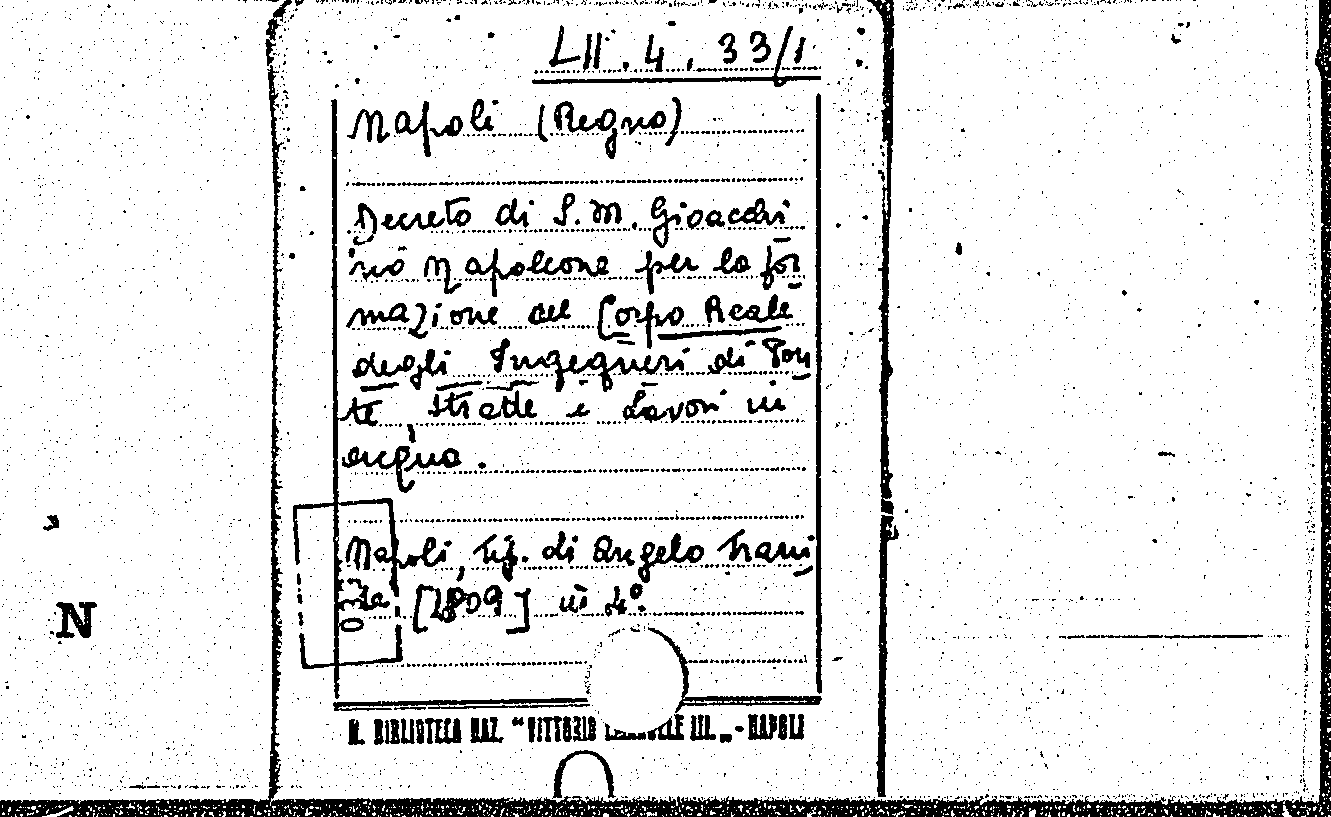 LII. 4. 33/1
Napoli (Regno)
Decreto di S. M. Gioacchi
no Napoleone per la for
mazione del Corpo Reale
degli Ingegneri di Pon
ti, Strade e Lavori in
acqua.
Napoli, Tip. di Angelo Trani
[1809] in 4°.
N. BIBLIOTECA NAZ. "VITTORIO III." - NAPOLI
N